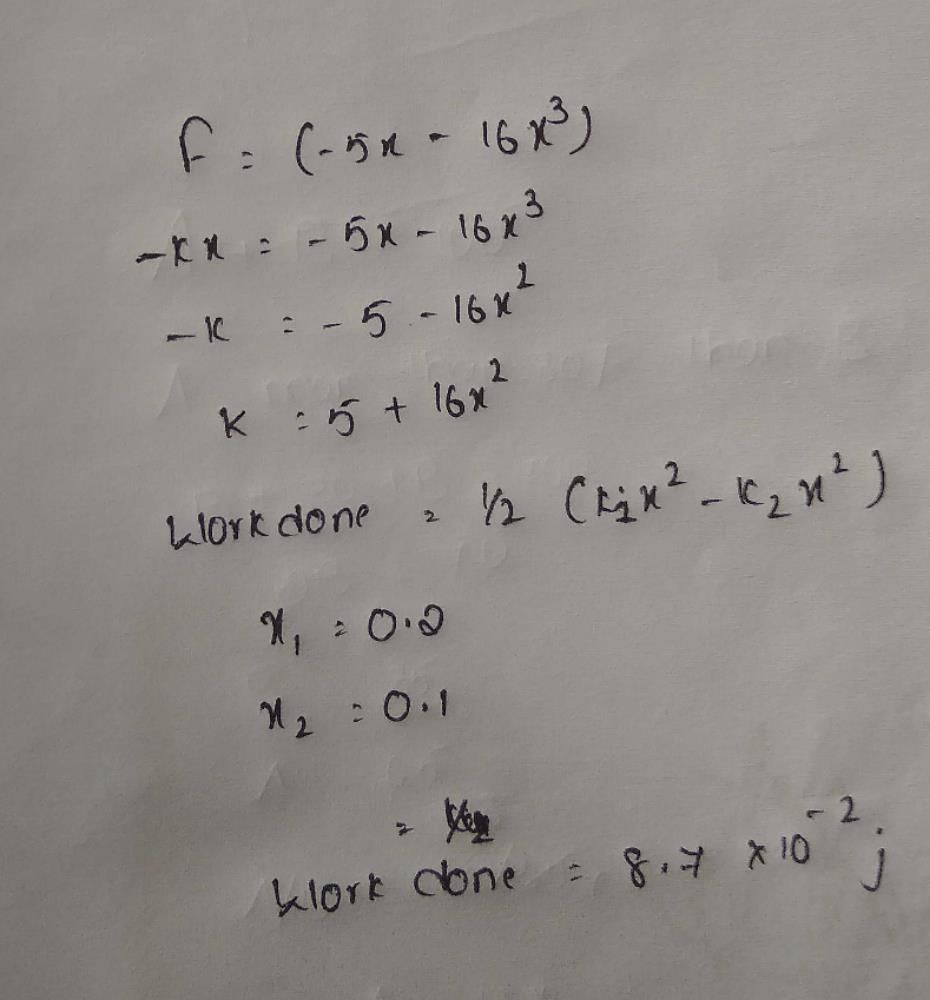 F = (-5x - 16x³)
-kx = -5x - 16x³
-k = -5 - 16x²
k = 5 + 16x²
Work done = 1/2 (k₁x² - k₂x²)
x₁ = 0.2
x₂ = 0.1
=
Work done = 8.7 × 10⁻² j